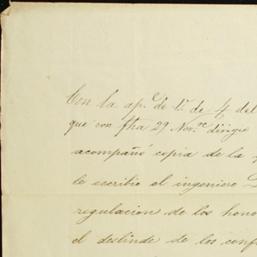 Con la ap.ᶜ de V. de 4 del
que con fha 29 Nov.ᵉ dirigió
acompañó copia de la
le escribió el ingeniero D
regulacion de los hono
el deslinde de los conf